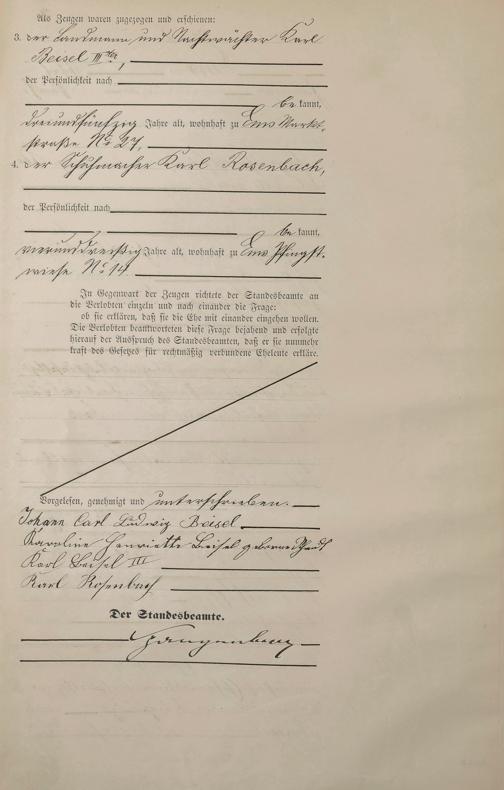 Als Zeugen waren zugezogen und erschienen:
3. der Landmann und Nachtwächter Karl
Beisel IIIter,
der Persönlichkeit nach
be kannt,
dreiundfünfzig Jahre alt, wohnhaft zu Ems Markt-
straße No 27,
4. der Schuhmacher Karl Rosenbach,
der Persönlichkeit nach
be kannt,
vierunddreißig Jahre alt, wohnhaft zu Ems Pfingst-
wiese No 14
In Gegenwart der Zeugen richtete der Standesbeamte an
die Verlobten einzeln und nach einander die Frage:
ob sie erklären, daß sie die Ehe mit einander eingehen wollen.
Die Verlobten beantworteten diese Frage bejahend und erfolgte
hierauf der Ausspruch des Standesbeamten, daß er sie nunmehr
kraft des Gesetzes für rechtmäßig verbundene Eheleute erkläre.
Vorgelesen, genehmigt und unterschrieben.
Johann Carl Ludwig Beisel
Karoline Henriette Beisel geborene
Karl Beisel III
Karl Rosenbach
Der Standesbeamte.